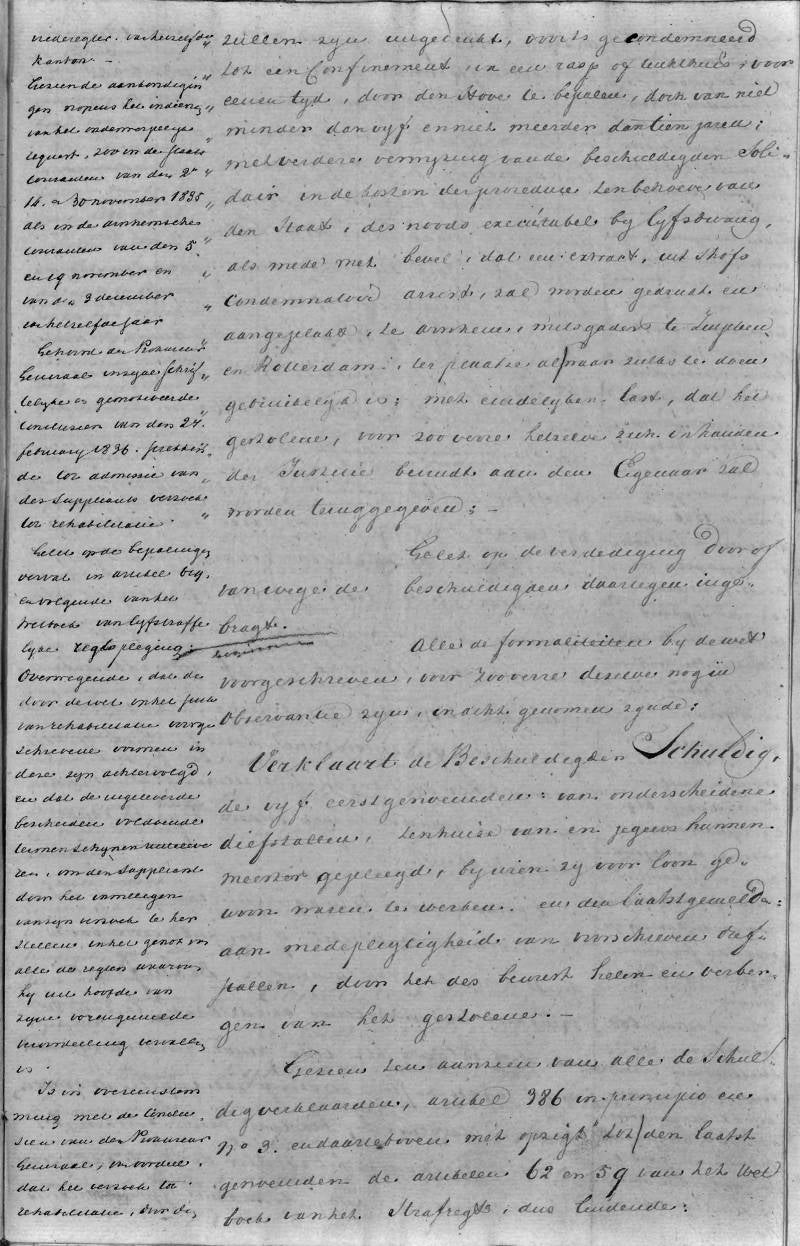 vrederegter van hetzelfde
kanton —
Gezien de aankondigin
gen nopens het indienen
van het onderwerpelijk
request, zoo in de Staats
couranten van den 2n
16. en 30 november 1835
als in de arnhemsche
couranten van den 5.
en 19 november en
van den 3 december
van hetzelfde jaar
Gehoord den Prokureur
Generaal in zijne schrif
telijke en gemotiveerde
conclusien van den 24.
february 1836. strekken
de tot admissie van
des Suppliants verzoek
tot rehabilitatie.
Gelet op de bepalingen
vervat in artikel 619.
en volgende van het
Wetboek van lijfstraffe
lijke regtspleging.
Overwegende, dat de
door de wet op het stuk
van rehabilitatie voorge
schrevene vormen in
deze zijn achtervolgd,
en dat de ingeleverde
bescheiden voldoende
termen schijnen
om den Suppliant
door het inwilligen
van zijn verzoek te her
stellen in het genot van
alle de regten waarvan
hij uit hoofde van
zijne vorengemelde
veroordeeling vervallen
is.
Is in overeenstem
ming met de conclu
sien van den Prokureur
Generaal, van oordeel
dat het verzoek tot
rehabilitatie, door den
zullen zyn uitgedrukt, voorts gecondemneerd
tot een Confinement, in een rasp of tuchthuis, voor
eenen tyd, door den Hove te bepalen, doch van niet
minder dan vyf en niet meerder dan tien jaren;
met verdere verwyzing van de beschuldigden Soli-
dair in de kosten der procedure ten behoeve van
den Staat, des noods executabel by lyfsdwang,
als mede met bevel, dat een extract, uit 's Hofs
Condemnatoir arrest, zal worden gedrukt en
aangeplakt, te Arnhem, mitsgaders te Zutphen
en Rotterdam, ter plaatse alwaar zulks te doen
gebruikelyk is; met eindelyken last, dat het
gestolene, voor zoo verre hetzelve zich in handen
der Justitie bevindt aan den Eigenaar zal
worden teruggegeven; —
Gelet op de verdediging door of
van wege de beschuldigden daartegen inge-
bragt.
Alle de formaliteiten by de wet
voorgeschreven, voor zoo verre dezelve nog in
Observantie zyn, in acht genomen zynde;
Verklaart de Beschuldigden Schuldig,
de vyf eerstgenoemden: van onderscheidene
diefstallen, ten huize van en jegens hunnen
meester gepleegd, by wien zy voor loon ge-
woon waren te werken. en den laatstgemelde
aan medepligtigheid van voorschreven dief-
stallen, door het des bewust helen en verber-
gen van het gestolene. —
Gezien ten aanzien van alle de Schul-
digverklaarden, artikel 386 in principio en
No 3. en daarteboven met opzigt tot den laatst
genoemden de artikelen 62 en 59 van het Wet
boek van het Strafregt, dus luidende: